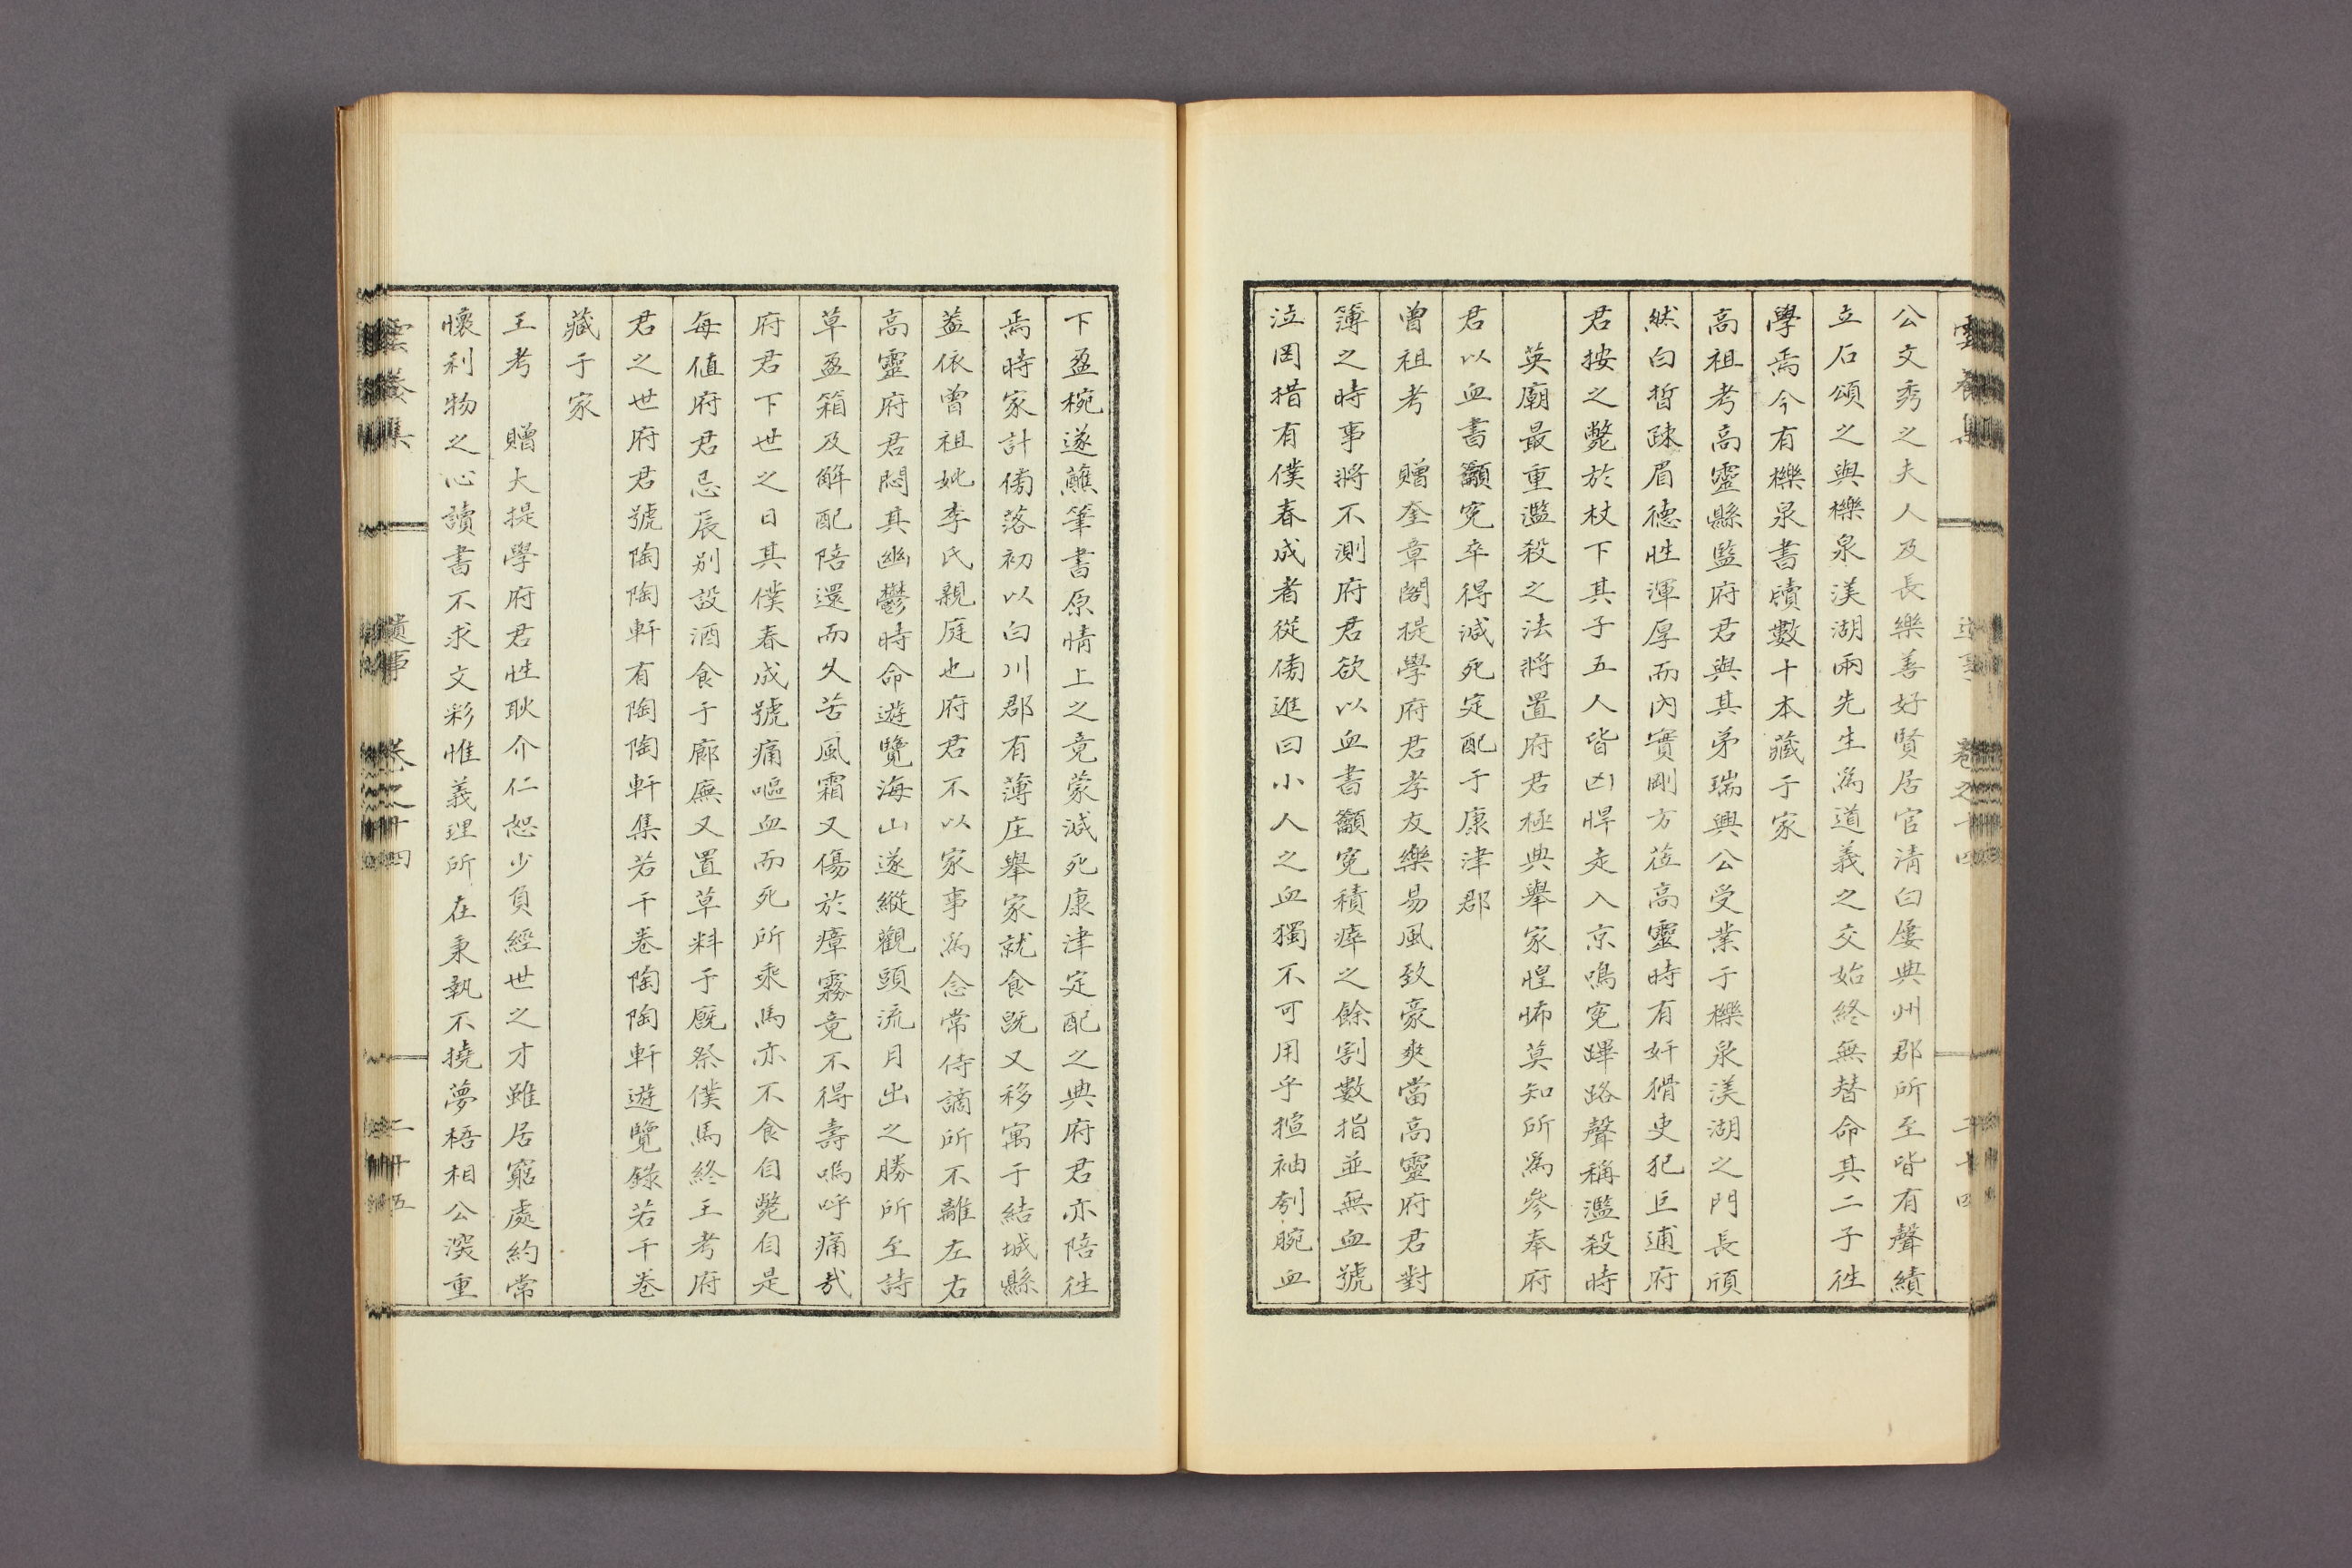 公文秀之夫人及長樂善好賢居官淸白屢典州郡所至皆有聲績
立石頌之與櫟泉渼湖兩先生爲道義之交始終無替命其二子徃
學焉今有櫟泉書牘數十本藏于家
高祖考高靈縣監府君與其弟瑞興公受業于櫟泉渼湖之門長頎
然白晢踈眉德性渾厚而內實剛方莅高靈時有奸猾吏犯巨逋府
君按之斃於杖下其子五人皆凶悍走入京鳴寃蹕路聲稱濫殺時
英廟最重濫殺之法將置府君極典擧家惶怖莫知所爲參奉府
君以血書籲寃卒得减死定配于康津郡
曾祖考 贈奎章閣提學府君孝友樂易風致豪爽當高靈府君對
簿之時事將不測府君欲以血書籲寃積瘁之餘割數指並無血號
泣罔措有僕春成者從傍進曰小人之血獨不可用乎揎袖刳腕血
下盈椀遂蘸筆書原情上之竟蒙减死康津定配之典府君亦陪徃
焉時家計傍落初以白川郡有薄庄擧家就食旣又移寓于結城縣
盖依曾祖妣李氏親庭也府君不以家事爲念常侍謫所不離左右
高靈府君悶其幽鬱時命遊覽海山遂縱觀頭流月出之勝所至詩
草盈箱及解配陪還而久苦風霜又傷於瘴霧竟不得壽嗚呼痛哉
府君下世之日其僕春成號痛嘔血而死所乘馬亦不食自斃自是
每值府君忌辰别設酒食于廊廡又置草料于廐祭僕馬終王考府
君之世府君號陶陶軒有陶陶軒集若干卷陶陶軒遊覽錄若干卷
藏于家
王考 贈大提學府君性耿介仁恕少負經世之才雖居窮處約常
懷利物之心讀書不求文彩惟義理所在秉執不撓夢梧相公深重
雲養集 遺事 卷之十四 二十五